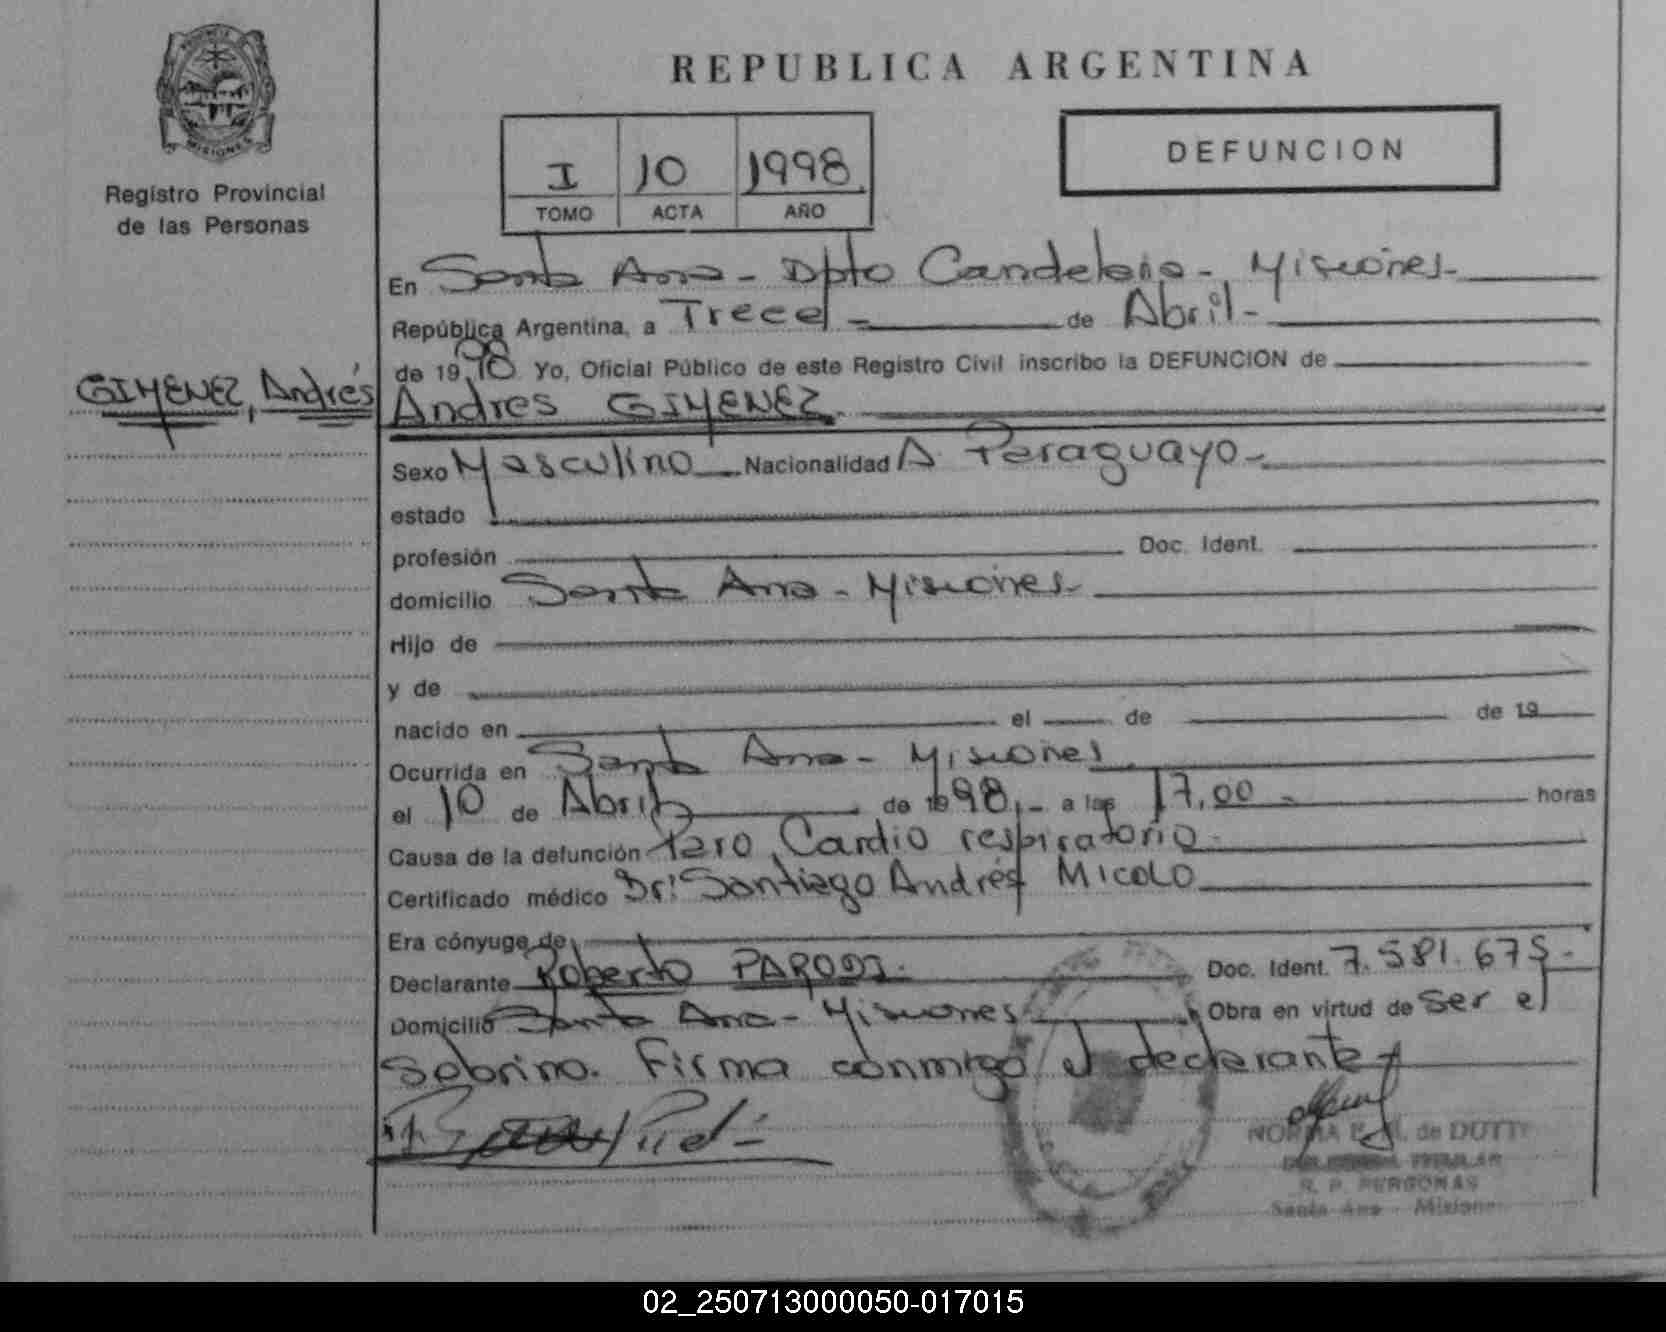 PROVINCIA
MISIONES
Registro Provincial
de las Personas
GIMENEZ, Andrés
REPUBLICA ARGENTINA
I 10 1998
TOMO ACTA AÑO
DEFUNCION
En Santa Ana - Dpto Candelaria - Misiones-
República Argentina, a Trece - de Abril-
de 19 98 Yo, Oficial Público de este Registro Civil inscribo la DEFUNCION de
Andres GIMENEZ.
Sexo Masculino Nacionalidad Paraguayo-
estado
profesión Doc. Ident.
domicilio Santa Ana - Misiones-
Hijo de
y de
nacido en el de de 19
Ocurrida en Santa Ana - Misiones
el 10 de Abril de 1998,- a las 17,00 - horas
Causa de la defunción Paro Cardio respiratorio-
Certificado médico Dr: Santiago Andrés MICOLO
Era cónyuge de
Declarante Roberto PARODI. Doc. Ident. 7.581.675.-
Domicilio Santa Ana - Misiones Obra en virtud de ser el
Sobrino. Firma conmigo el declarante
NORMA de DUTT
TITULAR
R. P. PERSONAS
Santa Ana - Misiones
02_250713000050-017015